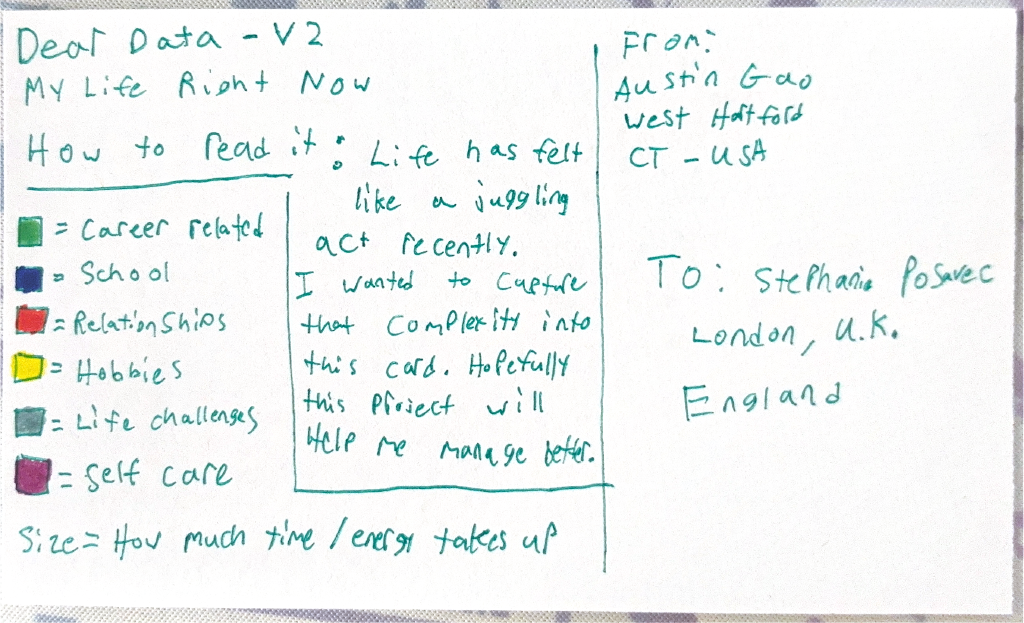 Dear Data - V2
My Life Right Now
How to read it :
= Career related
= School
= Relationships
= Hobbies
= Life challenges
= Self care
Size = How much time / energy takes up
Life has felt
like a juggling
act recently.
I wanted to capture
that complexity into
this card. Hopefully
this project will
Help me manage better.
From:
Austin Gao
West Hartford
CT - USA
To: Stephanie Posavec
London, U.K.
England